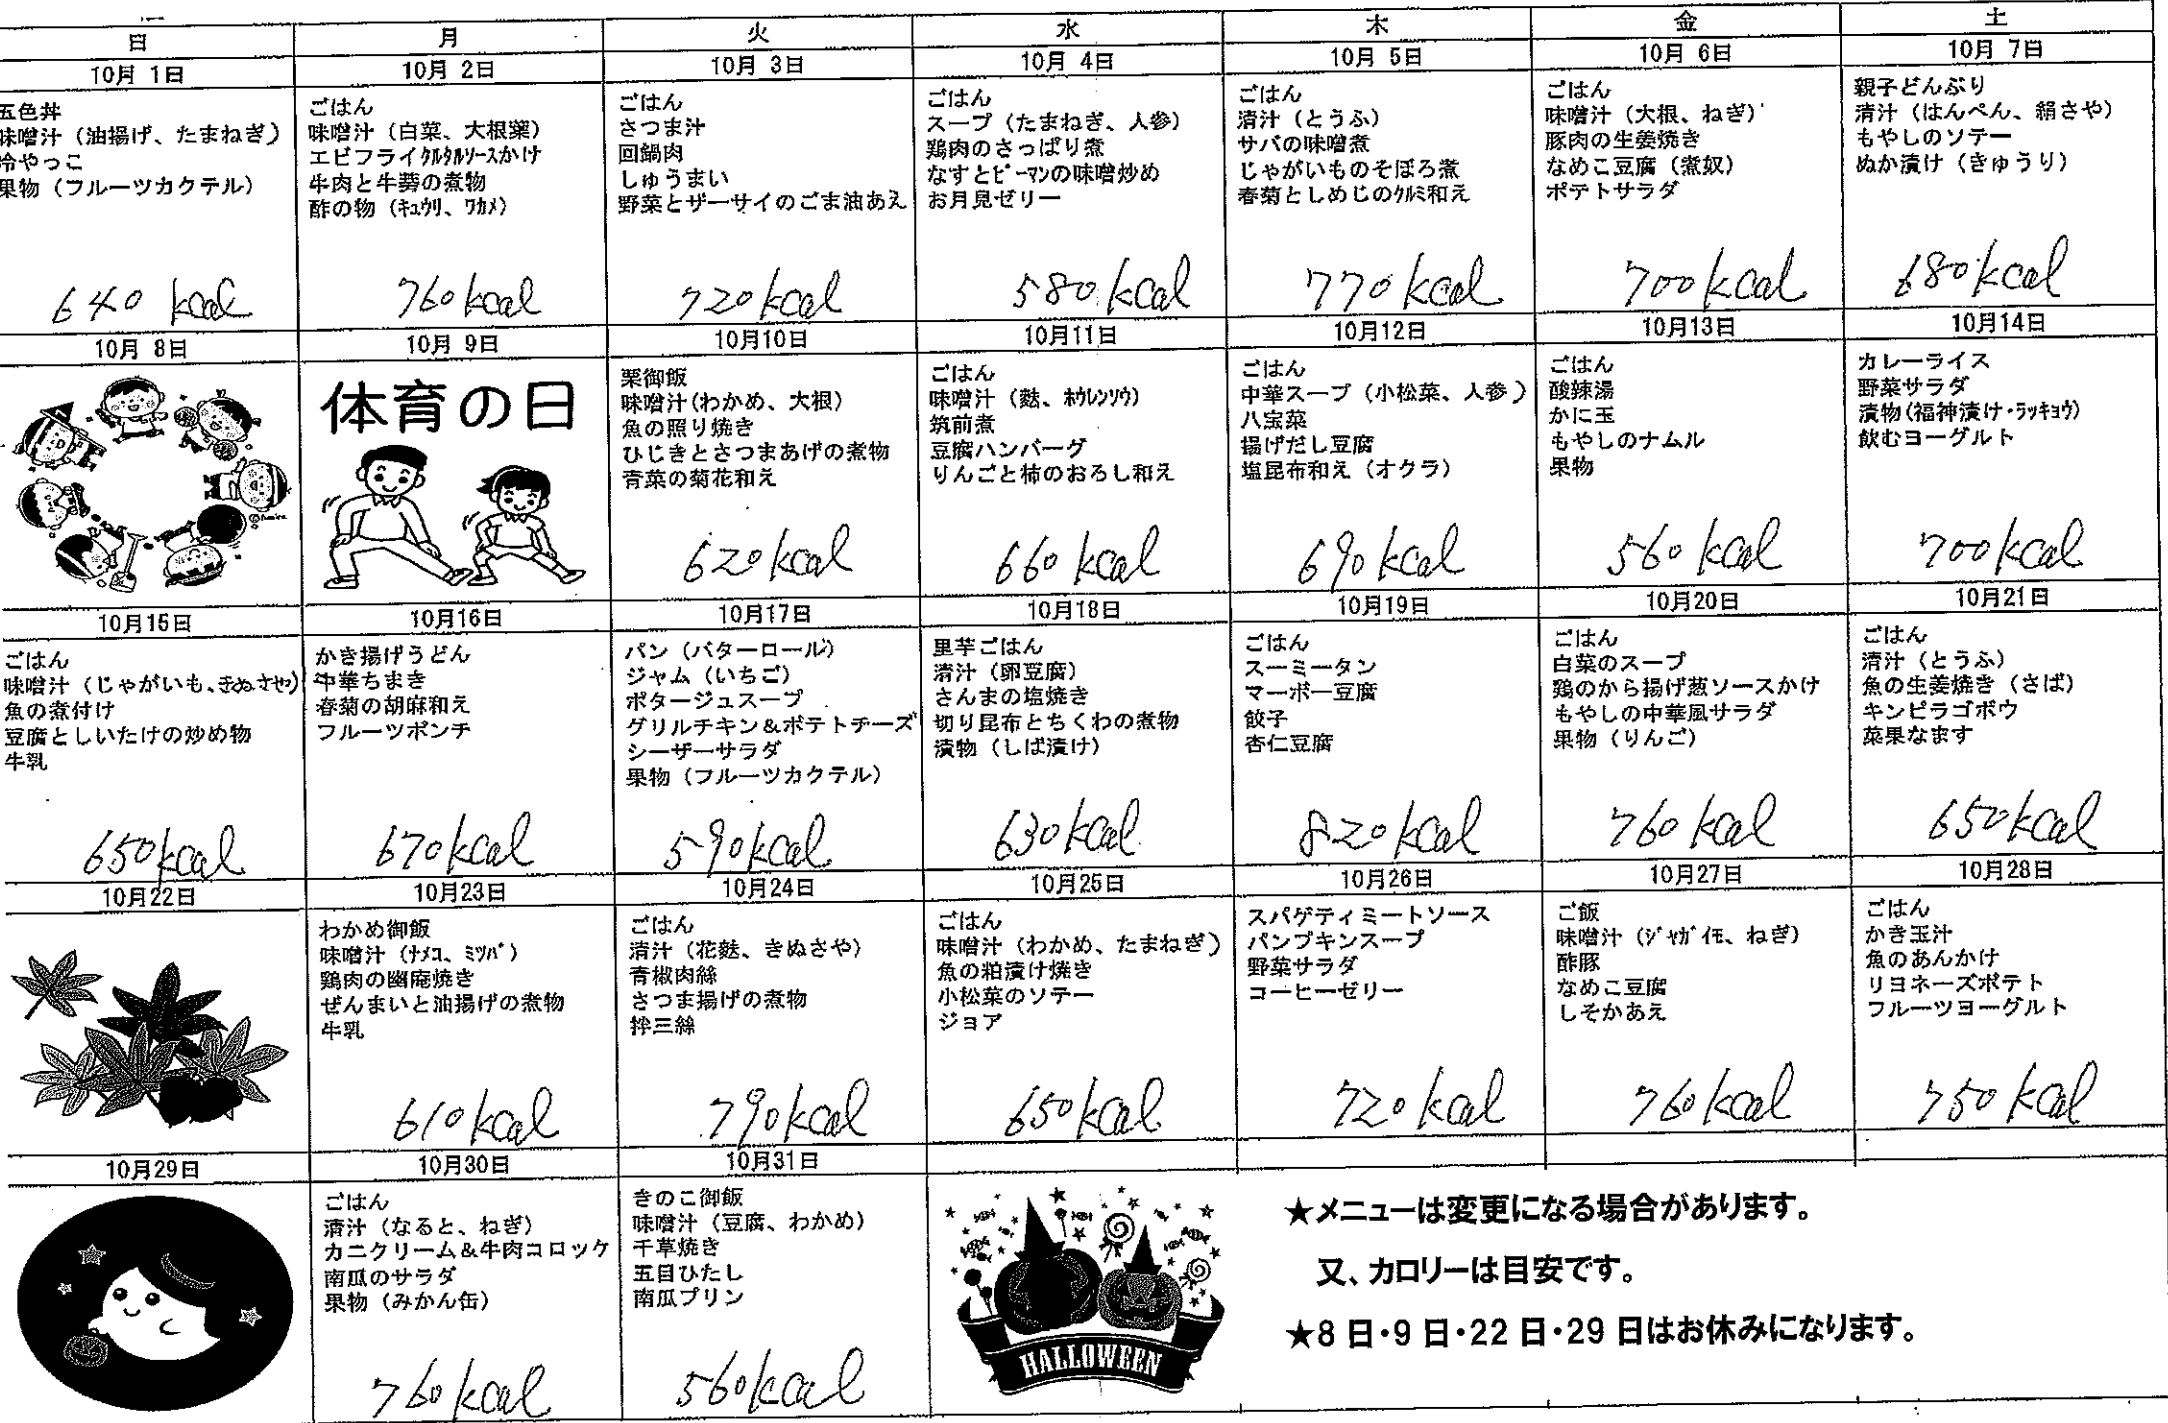 日
月
火
水
木
金
土
10月 1日
10月 2日
10月 3日
10月 4日
10月 5日
10月 6日
10月 7日
五色丼
味噌汁（油揚げ、たまねぎ）
冷やっこ
果物（フルーツカクテル）
640 kcal
ごはん
味噌汁（白菜、大根葉）
エビフライﾀﾙﾀﾙｿｰｽかけ
牛肉と牛蒡の煮物
酢の物（ｷｭｳﾘ、ﾜｶﾒ）
760kcal
ごはん
さつま汁
回鍋肉
しゅうまい
野菜とザーサイのごま油あえ
720kcal
ごはん
スープ（たまねぎ、人参）
鶏肉のさっぱり煮
なすとﾋﾟｰﾏﾝの味噌炒め
お月見ゼリー
580kcal
ごはん
清汁（とうふ）
サバの味噌煮
じゃがいものそぼろ煮
春菊としめじのｸﾙﾐ和え
770kcal
ごはん
味噌汁（大根、ねぎ）
豚肉の生姜焼き
なめこ豆腐（煮奴）
ポテトサラダ
700kcal
親子どんぶり
清汁（はんぺん、絹さや）
もやしのソテー
ぬか漬け（きゅうり）
680kcal
10月 8日
10月 9日
10月10日
10月11日
10月12日
10月13日
10月14日
体育の日
栗御飯
味噌汁(わかめ、大根)
魚の照り焼き
ひじきとさつまあげの煮物
青菜の菊花和え
620kcal
ごはん
味噌汁（麩、ﾎｳﾚﾝｿｳ）
筑前煮
豆腐ハンバーグ
りんごと柿のおろし和え
660 kcal
ごはん
中華スープ（小松菜、人参）
八宝菜
揚げだし豆腐
塩昆布和え（オクラ）
690kcal
ごはん
酸辣湯
かに玉
もやしのナムル
果物
560 kcal
カレーライス
野菜サラダ
漬物(福神漬け・ﾗｯｷｮｳ)
飲むヨーグルト
700kcal
10月15日
10月16日
10月17日
10月18日
10月19日
10月20日
10月21日
ごはん
味噌汁（じゃがいも、きぬさや）
魚の煮付け
豆腐としいたけの炒め物
牛乳
650kcal
かき揚げうどん
中華ちまき
春菊の胡麻和え
フルーツポンチ
670kcal
パン（バターロール）
ジャム（いちご）
ポタージュスープ
グリルチキン＆ポテトチーズ
シーザーサラダ
果物（フルーツカクテル）
590kcal
里芋ごはん
清汁（卵豆腐）
さんまの塩焼き
切り昆布とちくわの煮物
漬物（しば漬け）
630kcal
ごはん
スーミータン
マーボー豆腐
餃子
杏仁豆腐
820kcal
ごはん
白菜のスープ
鶏のから揚げ葱ソースかけ
もやしの中華風サラダ
果物（りんご）
760 kcal
ごはん
清汁（とうふ）
魚の生姜焼き（さば）
キンピラゴボウ
菜果なます
650kcal
10月22日
10月23日
10月24日
10月25日
10月26日
10月27日
10月28日
わかめ御飯
味噌汁（ﾅﾒｺ、ﾐﾂﾊﾞ）
鶏肉の幽庵焼き
ぜんまいと油揚げの煮物
牛乳
610kcal
ごはん
清汁（花麩、きぬさや）
青椒肉絲
さつま揚げの煮物
拌三絲
790kcal
ごはん
味噌汁（わかめ、たまねぎ）
魚の粕漬け焼き
小松菜のソテー
ジョア
650kcal
スパゲティミートソース
パンプキンスープ
野菜サラダ
コーヒーゼリー
720kcal
ご飯
味噌汁（ｼﾞｬｶﾞｲﾓ、ねぎ）
酢豚
なめこ豆腐
しそかあえ
760kcal
ごはん
かき玉汁
魚のあんかけ
リヨネーズポテト
フルーツヨーグルト
750 kcal
10月29日
10月30日
10月31日
ごはん
清汁（なると、ねぎ）
カニクリーム＆牛肉コロッケ
南瓜のサラダ
果物（みかん缶）
760kcal
きのこ御飯
味噌汁（豆腐、わかめ）
千草焼き
五目ひたし
南瓜プリン
560kcal
HALLOWEEN
★メニューは変更になる場合があります。
又、カロリーは目安です。
★8 日・9 日・22 日・29 日はお休みになります。